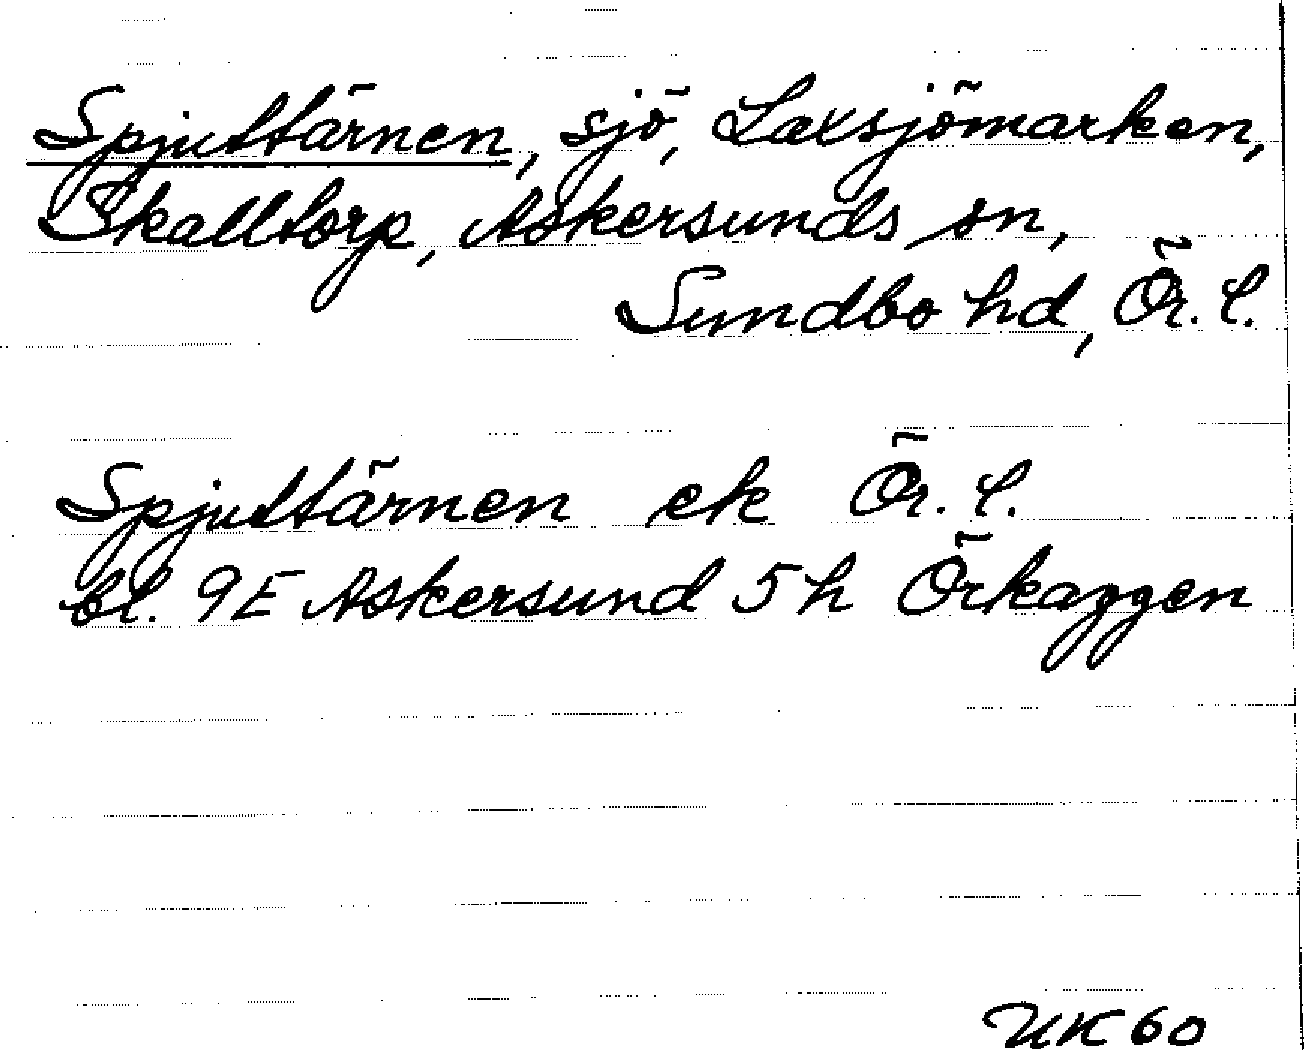 Spjuttärnen, sjö, Laxsjömarken,
Skalltorp, Askersunds sn,
Sundbo hd, Ör. l.
Spjuttärnen ek Ör. l.
bl. 9E Askersund 5h Örkaggen
UK 60